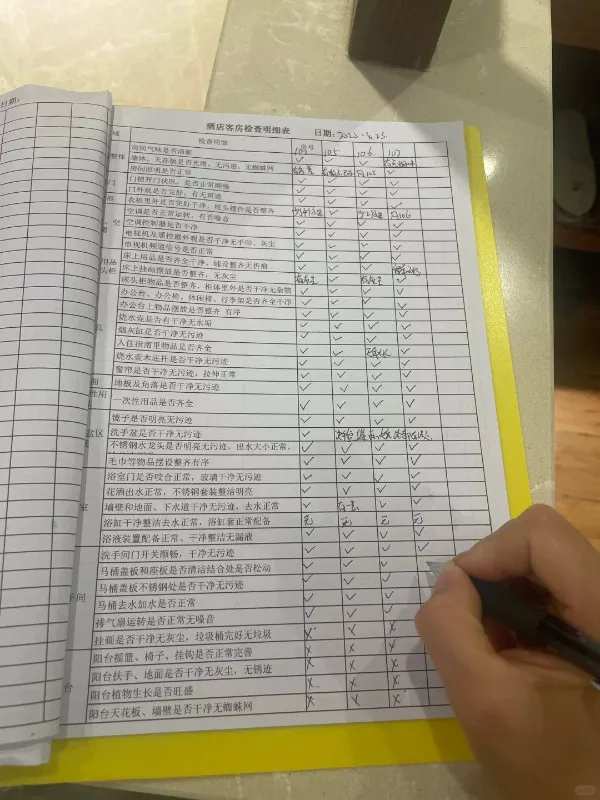 日期:
酒店客房检查明细表 日期:
域 检查明细 105 106 107
房间气味是否清新 ✓ ✓ ✓ ✓
整体 墙体、天花板是否光滑,无污迹,无蜘蛛网
房间照明是否正常 ✓ ✓
门 门锁开门状况,是否正常顺畅 ✓ ✓ ✓ ✓
门外观是否完好,有无斑迹 ✓ ✓ ✓ ✓
柜 衣柜里外是否完好干净,枕头摆件是否整齐 ✓ ✓ ✓ ✓
空 空调是否正常运转,有否噪音
调 空调控制器是否干净 ✓ ✓ ✓ ✓
电视机及遥控器外观是否干净无手印,灰尘 ✓ ✓ ✓ ✓
电视机频道信号是否正常 ✓ ✓ ✓ ✓
用品 床上用品是否齐全干净,铺设整齐无折痕 ✓ ✓ ✓ ✓
头柜 床上抽绳摆放是否整齐,无灰尘 ✓ ✓ ✓
床头柜物品是否整齐,柜体里外是否干净无杂物 ✓ ✓
办公台、办公椅、休闲椅、行李架是否齐全干净 ✓ ✓ ✓ ✓
办公台上物品摆放是否整齐 有序 ✓ ✓ ✓ ✓
烧水壶是否有干净无水垢 ✓ ✓ ✓ ✓
具 烟灰缸是否干净无污迹 ✓ ✓ ✓ ✓
入住指南里物品是否齐全 ✓ ✓ ✓ ✓
烧水壶木底托是否干净无污迹 ✓ ✓ ✓
窗帘是否干净无污迹,拉伸正常 ✓ ✓ ✓ ✓
面 地板及角落是否干净无污迹 ✓ ✓ ✓ ✓
性用 一次性用品是否齐全 ✓ ✓ ✓ ✓
镜子是否明亮无污迹 ✓ ✓ ✓ ✓
盆区 洗手盆是否干净无污迹 ✓
不锈钢水龙头是否明亮无污迹,出水大小正常, ✓ ✓ ✓ ✓
毛巾等物品摆设整齐有序 ✓ ✓ ✓ ✓
浴室门是否咬合正常,玻璃干净无污迹 ✓ ✓ ✓ ✓
花洒出水正常,不锈钢套装整洁明亮 ✓ ✓ ✓ ✓
室 墙壁和地面、下水道干净无污迹,去水正常 ✓ ✓ ✓
浴缸干净整洁去水正常,浴缸套正常配备 无 无 无 无
浴液装置配备正常、干净整洁无漏液 ✓ ✓ ✓ ✓
洗手间门开关顺畅,干净无污迹 ✓ ✓ ✓ ✓
马桶盖板和座板是否清洁结合处是否松动 ✓ ✓ ✓ ✓
手间 马桶盖板不锈钢处是否干净无污迹 ✓ ✓ ✓ ✓
马桶去水加水是否正常 ✓ ✓ ✓
排气扇运转是否正常无噪音 ✓ ✓ ✓
挂画是否干净无灰尘,垃圾桶完好无垃圾 X X X
阳台摇篮、椅子、挂钩是否正常完善 X X X
阳台扶手、地面是否干净无灰尘,无锈迹 X X X
台 阳台植物生长是否旺盛 X X X
阳台天花板、墙壁是否干净无蜘蛛网 X X X